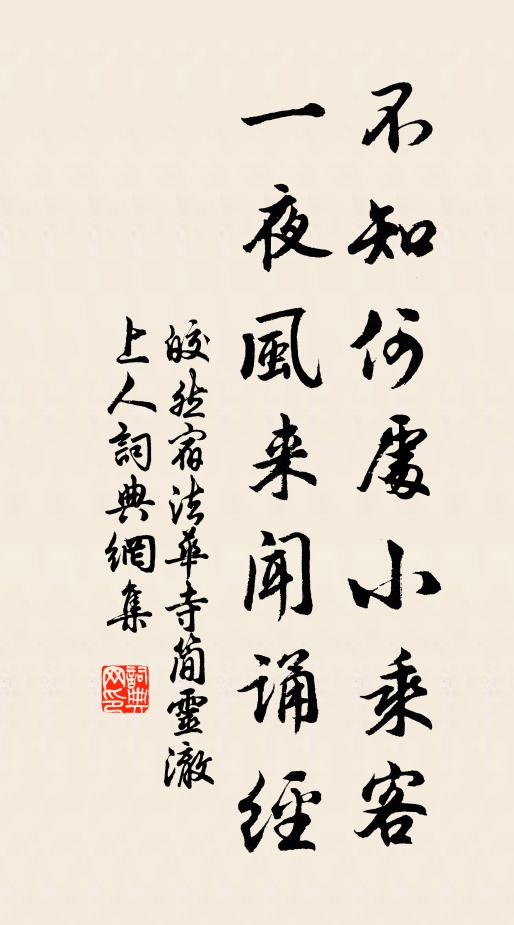 不知何處小乘客
一夜風来闻誦經
皎然宿法華寺簡靈澈
上人詞典網集
詞典网印